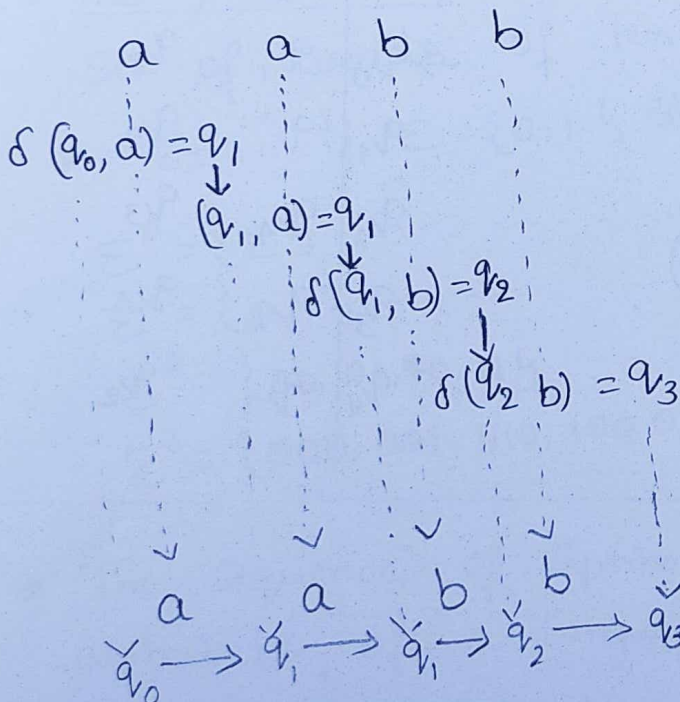 a a b b
δ (q₀, a) = q₁
(q₁, a) = q₁
δ(q₁, b) = q₂
δ(q₂ b) = q₃
a a b b
q₀ → q₁ → q₁ → q₂ → q₃